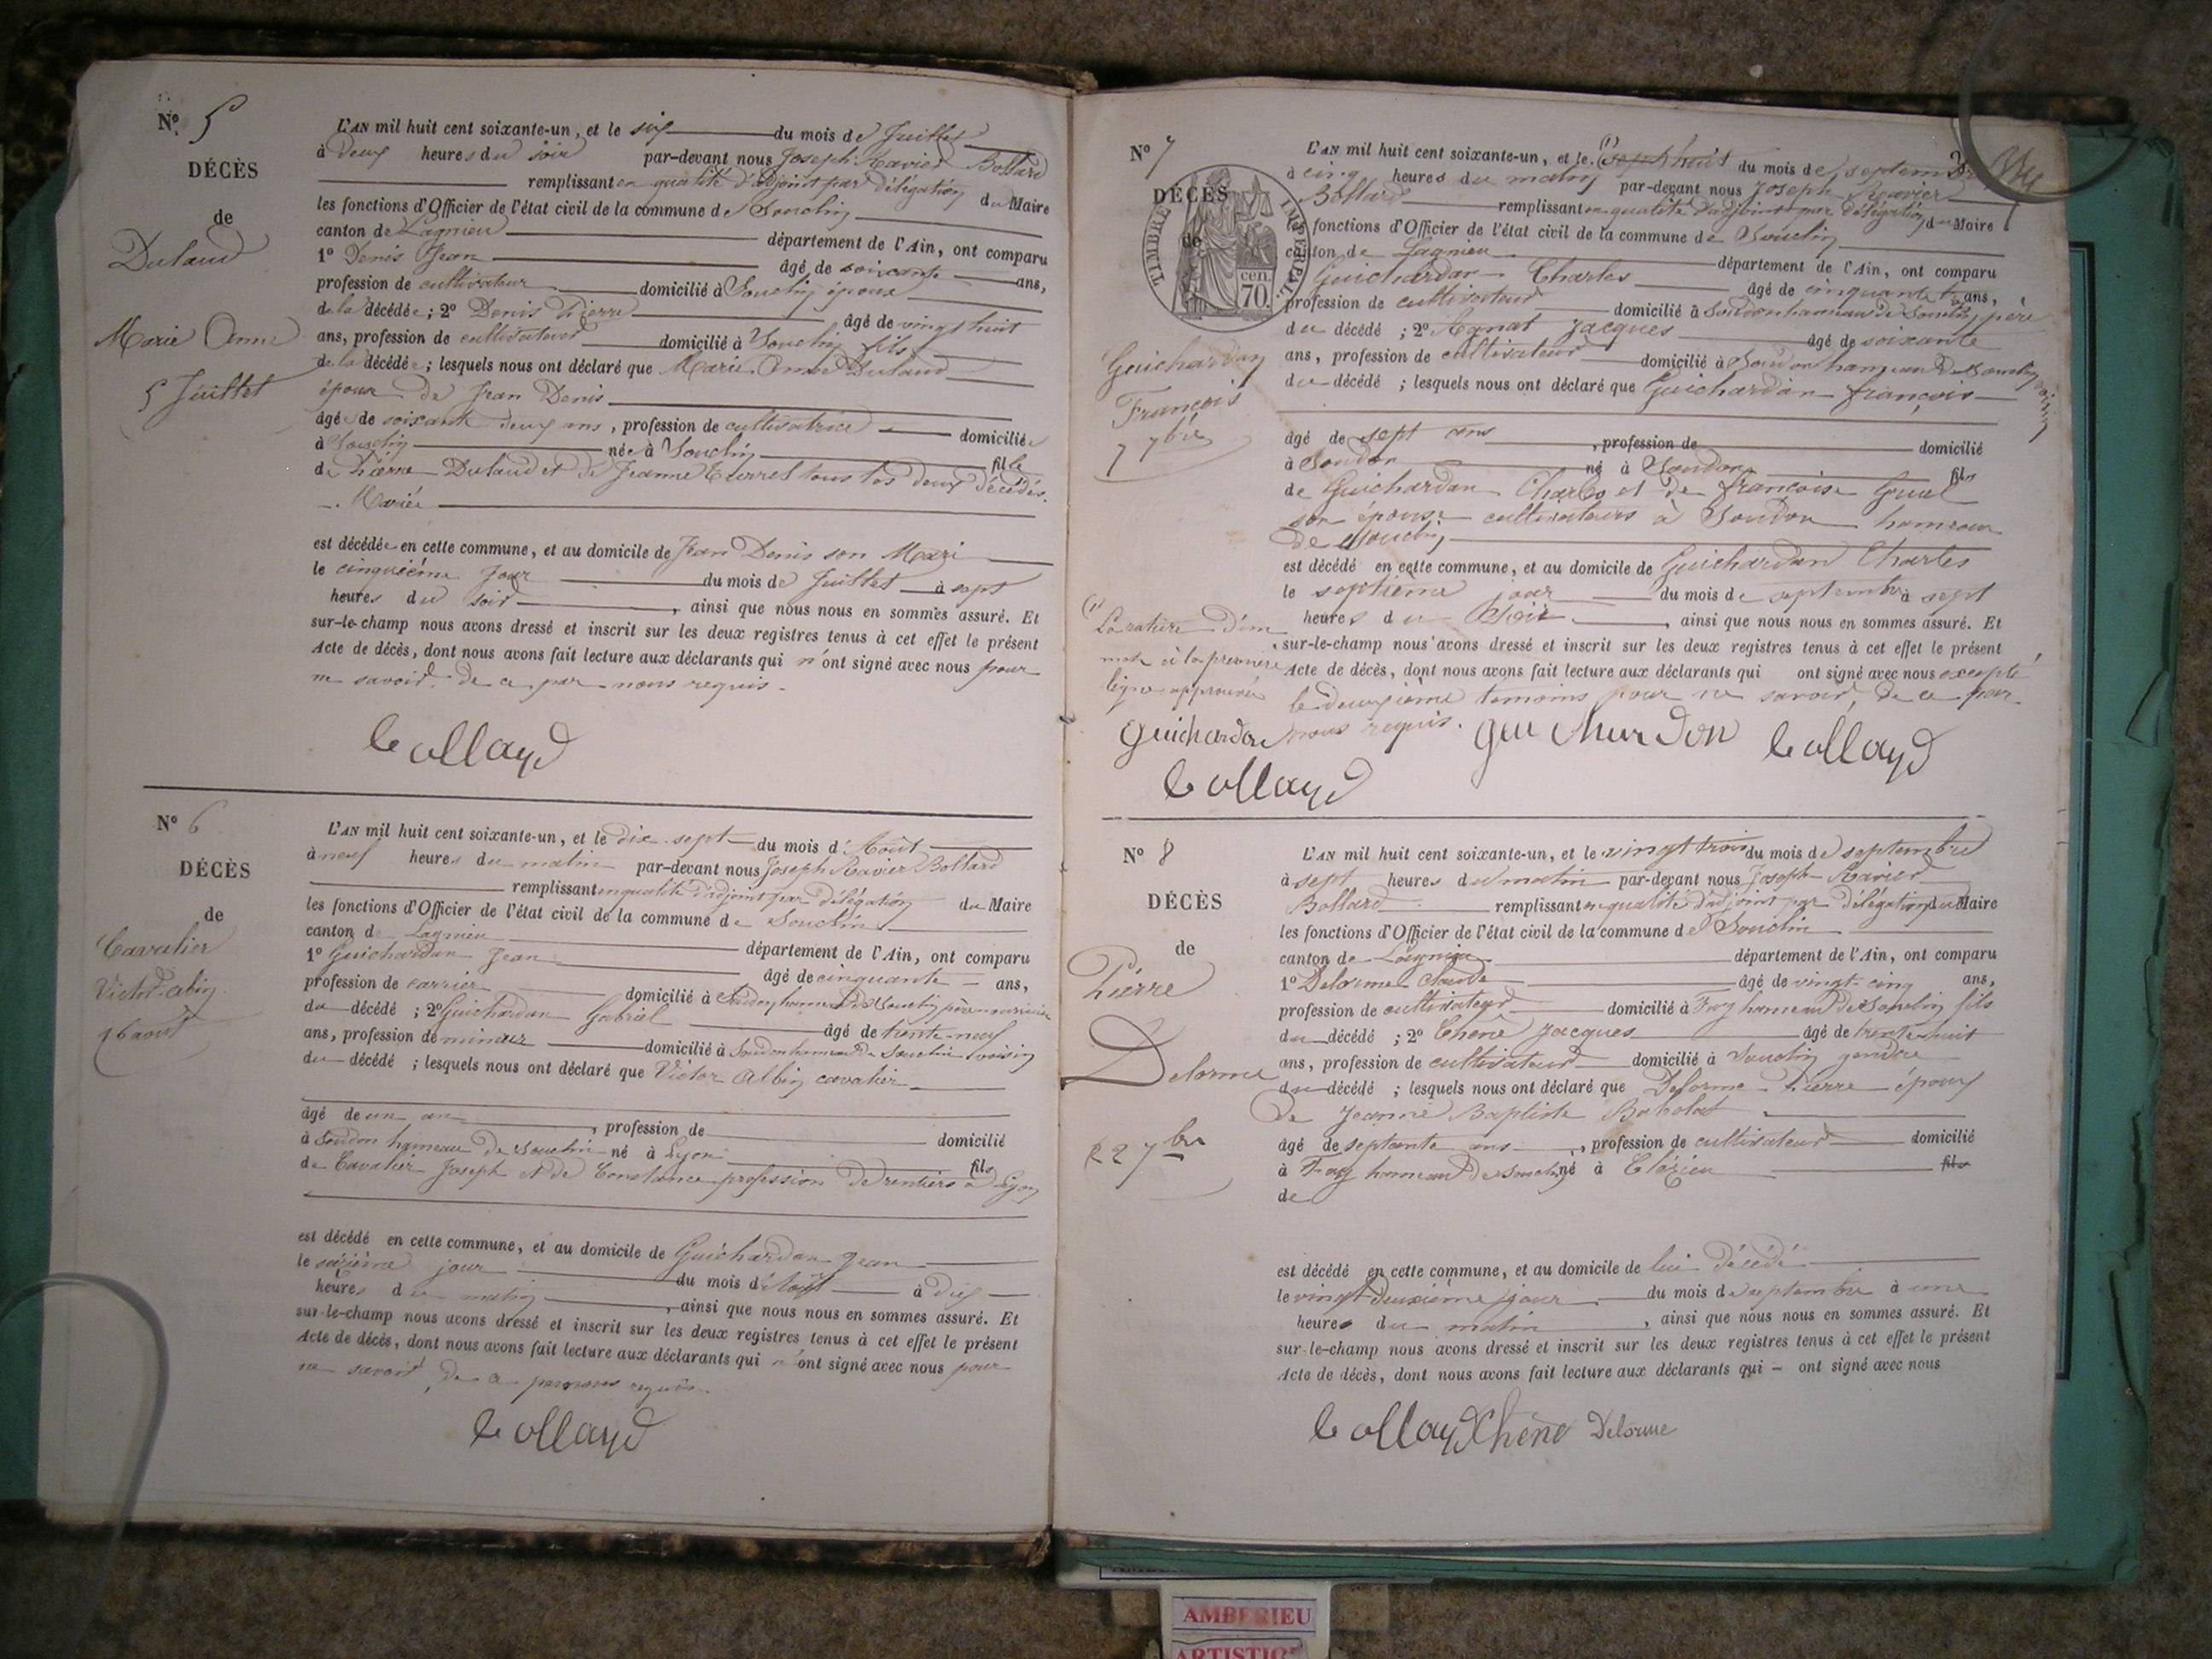 N° 5
DÉCÈS
de
Dulaud
Marie Anne
5 Juillet
L'AN mil huit cent soixante-un, et le six du mois de Juillet
à deux heures du soir par-devant nous Joseph Xavier Bollard
remplissant en qualité d'adjoint par délégation du Maire
les fonctions d'Officier de l'état civil de la commune de Souclin
canton de Lagnieu département de l'Ain, ont comparu
1° Denis Jean âgé de soixante ans,
profession de cultivateur domicilié à Souclin époux
de la décédée ; 2° Denis Pierre âgé de vingt huit
ans, profession de cultivateur domicilié à Souclin fils
de la décédée ; lesquels nous ont déclaré que Marie Anne Dulaud
épouse de Jean Denis
âgée de soixante deux ans, profession de cultivatrice domiciliée
à Souclin née à Souclin fille
de Pierre Dulaud et de Jeanne tous les deux décédés.
Mariée
est décédée en cette commune, et au domicile de Jean Denis son Mari
le cinquième jour du mois de Juillet à sept
heures du soir, ainsi que nous nous en sommes assuré. Et
sur-le-champ nous avons dressé et inscrit sur les deux registres tenus à cet effet le présent
Acte de décès, dont nous avons fait lecture aux déclarants qui n'ont signé avec nous pour
ne savoir de ce par nous requis.
bollard
N° 6
DÉCÈS
de
Cavalier
Victor albin
16 aout
L'AN mil huit cent soixante-un, et le dix-sept du mois d'Août
à neuf heures du matin par-devant nous Joseph Xavier Bollard
remplissant en qualité d'adjoint par délégation du Maire
les fonctions d'Officier de l'état civil de la commune de Souclin
canton de Lagnieu département de l'Ain, ont comparu
1° Guichardan Jean âgé de cinquante ans,
profession de carrier domicilié à Soudon hameau de Souclin père nourricier
du décédé ; 2° Guichardan Gabriel âgé de trente-neuf
ans, profession de mineur domicilié à Soudon hameau de Souclin voisin
du décédé ; lesquels nous ont déclaré que Victor Albin cavalier
âgé de un an, profession de domicilié
à Soudon hameau de Souclin né à Lyon fils
de Cavalier Joseph et de Constance profession de rentiers à Lyon
est décédé en cette commune, et au domicile de Guichardan Jean
le seizième jour du mois d'Août à dix
heures du matin, ainsi que nous nous en sommes assuré. Et
sur-le-champ nous avons dressé et inscrit sur les deux registres tenus à cet effet le présent
Acte de décès, dont nous avons fait lecture aux déclarants qui n'ont signé avec nous pour
ne savoir de ce par nous requis.
bollard
N° 7
DÉCÈS
de
TIMBRE IMPÉRIAL
70 cen.
Guichardan
François
7 7bre
L'AN mil huit cent soixante-un, et le (1) sept huit du mois de septembre
à cinq heures du matin par-devant nous Joseph Xavier
Bollard remplissant en qualité d'adjoint par délégation du Maire
les fonctions d'Officier de l'état civil de la commune de Souclin
canton de Lagnieu département de l'Ain, ont comparu
Guichardan Charles âgé de cinquante ans,
profession de cultivateur domicilié à Soudon hameau de Souclin père
du décédé ; 2° Jacques âgé de soixante
ans, profession de cultivateur domicilié à Soudon hameau de Souclin voisin
du décédé ; lesquels nous ont déclaré que Guichardan françois
âgé de sept ans, profession de domicilié
à Soudon né à Soudon fils
de Guichardan Charles et de françoise
son épouse cultivateurs à Soudon hameau
de Souclin
est décédé en cette commune, et au domicile de Guichardan Charles
le septième jour du mois de septembre à sept
heures du Soir, ainsi que nous nous en sommes assuré. Et
sur-le-champ nous avons dressé et inscrit sur les deux registres tenus à cet effet le présent
Acte de décès, dont nous avons fait lecture aux déclarants qui ont signé avec nous excepté
le deuxième témoins pour ne savoir, de ce par
nous requis.
(1)
La rature d'un
mot à la première
ligne approuvée
guichardon
bollard
N° 8
DÉCÈS
de
Pierre
Delorme
22 7bre
L'AN mil huit cent soixante-un, et le vingt trois du mois de septembre
à sept heures du matin par-devant nous Joseph Xavier
Bollard remplissant en qualité d'adjoint par délégation du Maire
les fonctions d'Officier de l'état civil de la commune de Souclin
canton de Lagnieu département de l'Ain, ont comparu
1° Delorme Claude âgé de vingt-cinq ans,
profession de cultivateur domicilié à Fay hameau de Souclin fils
du décédé ; 2° Chêne Jacques âgé de trente-huit
ans, profession de cultivateur domicilié à Souclin gendre
du décédé ; lesquels nous ont déclaré que Delorme Pierre époux
de Jeanne Baptiste
âgé de septante ans, profession de cultivateur domicilié
à Fay hameau de Souclin né à Clézieu fils
de
est décédé en cette commune, et au domicile de lui décédé
le vingt-deuxième jour du mois de septembre à une
heures du matin, ainsi que nous nous en sommes assuré. Et
sur-le-champ nous avons dressé et inscrit sur les deux registres tenus à cet effet le présent
Acte de décès, dont nous avons fait lecture aux déclarants qui – ont signé avec nous
bollard Chêne Delorme
AMBERIEU
ARTISTIC